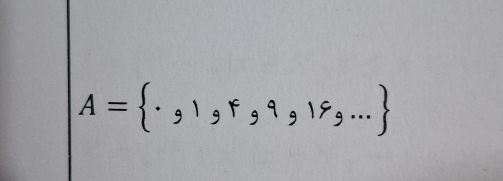 A = {۰ و ۱ و ۴ و ۹ و ۱۶ و ...}